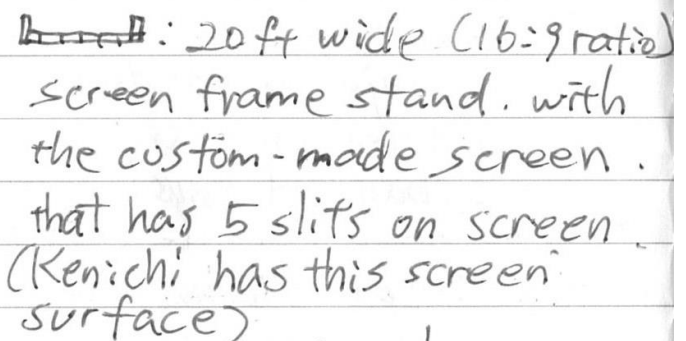 : 20 ft wide (16:9 ratio)
screen frame stand. with
the custom-made screen.
that has 5 slits on screen.
(Kenichi has this screen
surface)